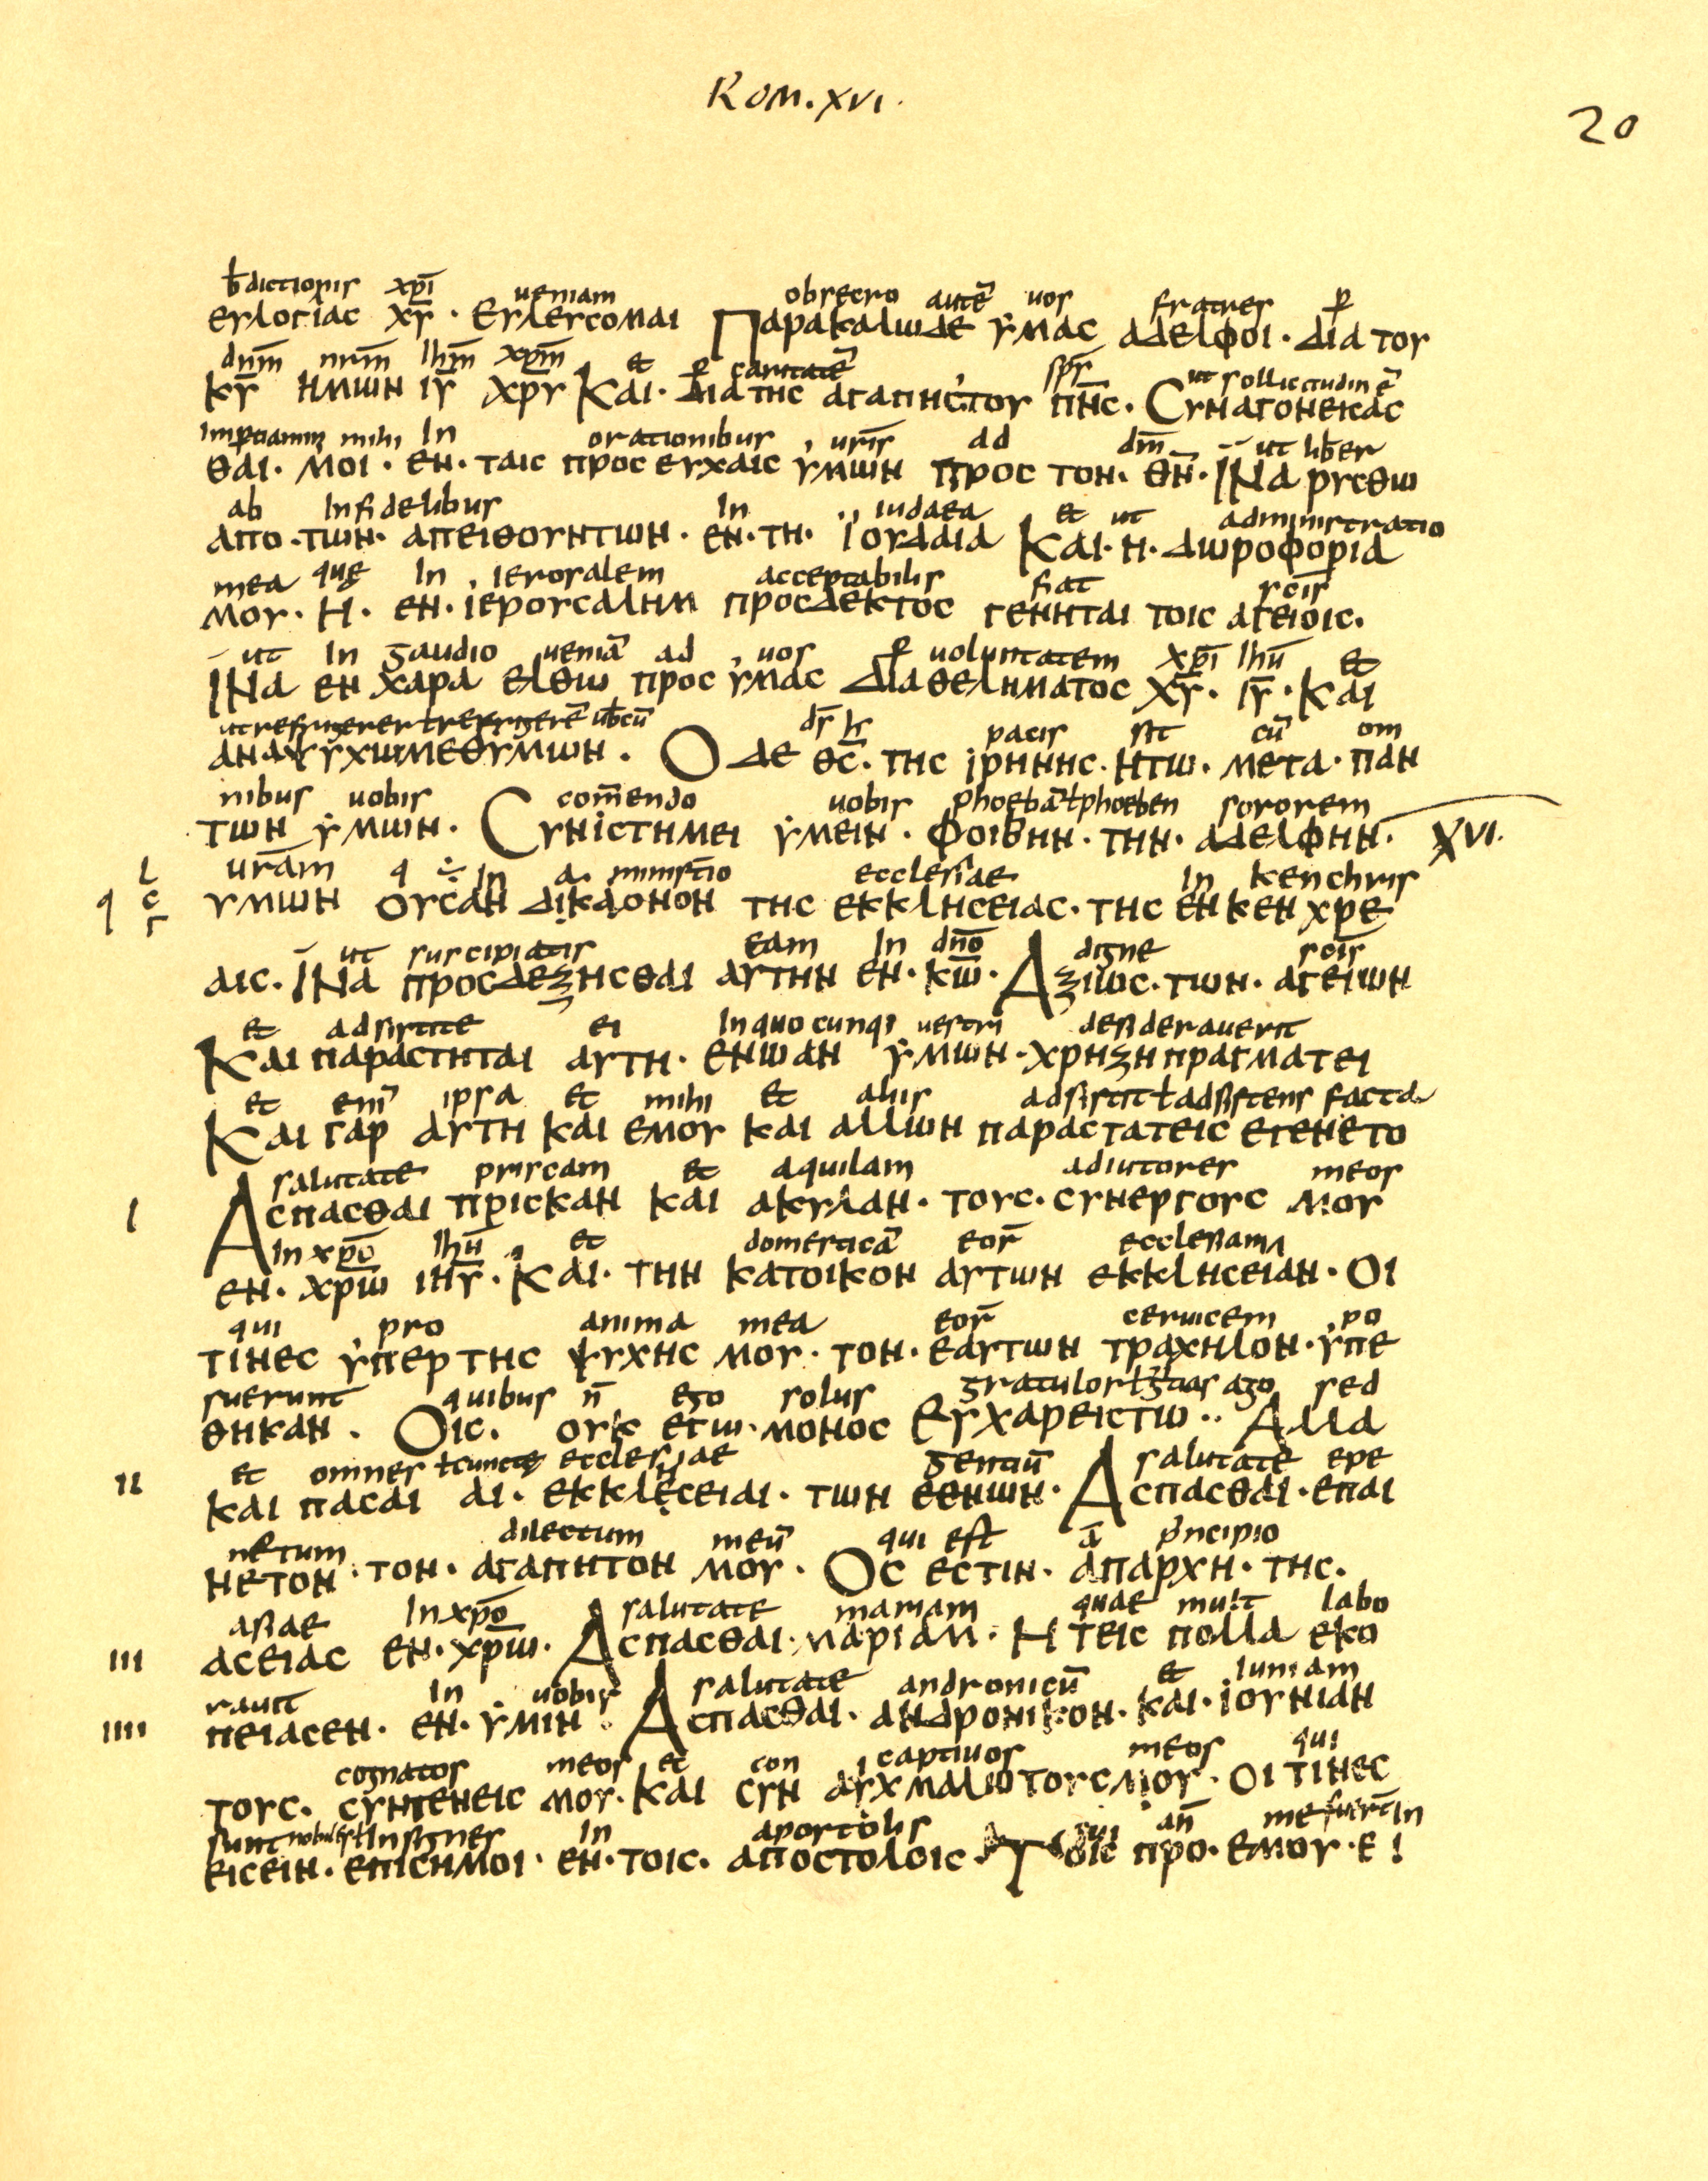 Rom. XVI.
20
b̄dictionis xp̄i ueniam obsecro autē uos fratres ꝑ
ΕΥΛΟΓΙΑC ΧΥ̅ · ΕΥΛΕΥCΟΜΑΙ ΠΑΡΑΚΑΛΩΔΕ ΥΜΑC ΑΔΕΛΦΟΙ · ΔΙΑ ΤΟΥ
dn̄m nr̄m ih̄m xp̄m et ꝑ caritatē sp̄s ut sollicitudinē
ΚΥ̅ ΗΜΩΝ ΙΥ̅ ΧΡΥ ΚΑΙ · ΔΙΑ ΤΗC ΑΓΑΠΗC ΤΟΥ ΠΝ̅C · CΥΝΑΓΟΝΕΙCΑC
mihi In orationibus ur̄is ad dm̄ ut liber
ΘΑΙ · ΜΟΙ · ΕΝ · ΤΑΙC ΠΡΟC ΕΥΧΑΙC ΥΜΩΝ ΠΡΟC ΤΟΝ · ΘΝ̅ · ΙΝΑ ΡΥCΘΩ
ab Infidelibus In iudaea et ut administratio
ΑΠΟ · ΤΩΝ · ΑΠΕΙΘΟΥΝΤΩΝ · ΕΝ · ΤΗ · ΙΟΥΔΑΙΑ ΚΑΙ · Η · ΔΩΡΟΦΟΡΙΑ
mea quę In ierosalem acceptabilis fiat sc̄is
ΜΟΥ · Η · ΕΝ · ΙΕΡΟΥCΑΛΗΜ ΠΡΟCΔΕΚΤΟC ΓΕΝΗΤΑΙ ΤΟΙC ΑΓΕΙΟΙC ·
ut In gaudio ueniā ad uos ꝑ uoluntatem xp̄i ihū et
ΙΝΑ ΕΝ ΧΑΡΑ ΕΛΘΩ ΠΡΟC ΥΜΑC ΔΙΑ ΘΕΛΗΜΑΤΟC ΧΥ̅ · ΙΥ̅ · ΚΑΙ
ut refrigerer ł refrigerē ds̄ pacis sit cū om
ΑΝΑΨΥΧΩΜΕΘΥΜΩΝ · Ο ΔΕ ΘC̅ · ΤΗC ΙΡΗΝΗC · ΗΤΩ · ΜΕΤΑ · ΠΑΝ
nibus uobis com̄endo uobis phoebā ł phoeben sororem
ΤΩΝ ΥΜΩΝ · CΥΝΙCΤΗΜΕΙ ΥΜΕΙΝ · ΦΟΙΒΗΝ · ΤΗΝ · ΑΔΕΛΦΗΝ · XVI.
urām q ÷ In ministio ecclesiae In kenchris
ΥΜΩΝ ΟΥCΑΝ ΔΙΚΑΟΝΟΝ ΤΗC ΕΚΚΛΗCΕΙΑC · ΤΗC ΕΝ ΚΕΝ ΧΡΕ
ut suscipiatis eam In dn̄o digne sc̄is
ΑΙC · ΙΝΑ ΠΡΟCΔΕΞΗCΘΑΙ ΑΥΤΗΝ ΕΝ · ΚΩ̅ · ΑΞΙΩC · ΤΩΝ · ΑΓΕΙΩΝ
et adsistite ei In quocunqi uestri desiderauerit
ΚΑΙ ΠΑΡΑCΤΗΤΑΙ ΑΥΤΗ · ΕΝΩ ΑΝ ΥΜΩΝ · ΧΡΗΖΗ ΠΡΑΓΜΑΤΕΙ
et enī ipsa et mihi et aliis adsistit ł adsistens facta
ΚΑΙ ΓΑΡ ΑΥΤΗ ΚΑΙ ΕΜΟΥ ΚΑΙ ΑΛΛΩΝ ΠΑΡΑCΤΑΤΕΙC ΕΓΕΝΕΤΟ
salutate priscam et aquilam adiutores meos
I ΑCΠΑCΘΑΙ ΠΡΙCΚΑΝ ΚΑΙ ΑΚΥΛΑΝ · ΤΟΥC · CΥΝΕΡΓΟΥC ΜΟΥ
In xp̄o ihū et domesticā eor̄ ecclesiam
ΕΝ · ΧΡΩ̅ ΙΗΥ̅ · ΚΑΙ · ΤΗΝ ΚΑΤΟΙΚΟΝ ΑΥΤΩΝ ΕΚΚΛΗCΕΙΑΝ · ΟΙ
qui pro anima mea eor̄ ceruicem po
ΤΙΝΕC ΥΠΕΡ ΤΗC ΨΥΧΗC ΜΟΥ · ΤΟΝ · ΕΑΥΤΩΝ ΤΡΑΧΗΛΟΝ · ΥΠΕ
suerunt quibus n̄ ego solus gratulor ł ago sed
ΘΗΚΑΝ · ΟΙC · ΟΥΚ ΕΓΩ · ΜΟΝΟC ΕΥΧΑΡΕΙCΤΩ · · ΑΛΛΑ
et omnes ł cunctę ecclesiae gentiū salutate epe
II ΚΑΙ ΠΑCΑΙ ΑΙ · ΕΚΚΛΕCΕΙΑΙ · ΤΩΝ ΕΘΝΩΝ · ΑCΠΑCΘΑΙ · ΕΠΑΙ
netum dilectum meū qui est ā principio
ΝΕΤΟΝ · ΤΟΝ · ΑΓΑΠΗΤΟΝ ΜΟΥ · ΟC ΕCΤΙΝ · ΑΠΑΡΧΗ · ΤΗC ·
asiae In xp̄o salutate mariam quae mult labo
III ΑCΕΙΑC ΕΝ · ΧΡΩ̅ · ΑCΠΑCΘΑΙ · ΜΑΡΙΑΜ · Η ΤΕΙC ΠΟΛΛΑ ΕΚΟ
rauit In uobis salutate andronicū et Iuniam
IIII ΠΕΙΑCΕΝ · ΕΝ · ΥΜΙΝ · ΑCΠΑCΘΑΙ · ΑΝΔΡΟΝΙΚΟΝ · ΚΑΙ · ΙΟΥΝΙΑΝ
cognatos meos et con captiuos meos qui
ΤΟΥC · CΥΝΓΕΝΕΙC ΜΟΥ · ΚΑΙ CΥΝ ΑΥΧΜΑΛΩΤΟΥC ΜΟΥ · ΟΙ ΤΙΝΕC
sunt nobiles ł Insignes In apostolis qui an̄ me fuer̄t In
ΕΙCΕΙΝ · ΕΠΙCΗΜΟΙ · ΕΝ · ΤΟΙC · ΑΠΟCΤΟΛΟΙC · ΤΟΙC ΠΡΟ · ΕΜΟΥ · Ε !